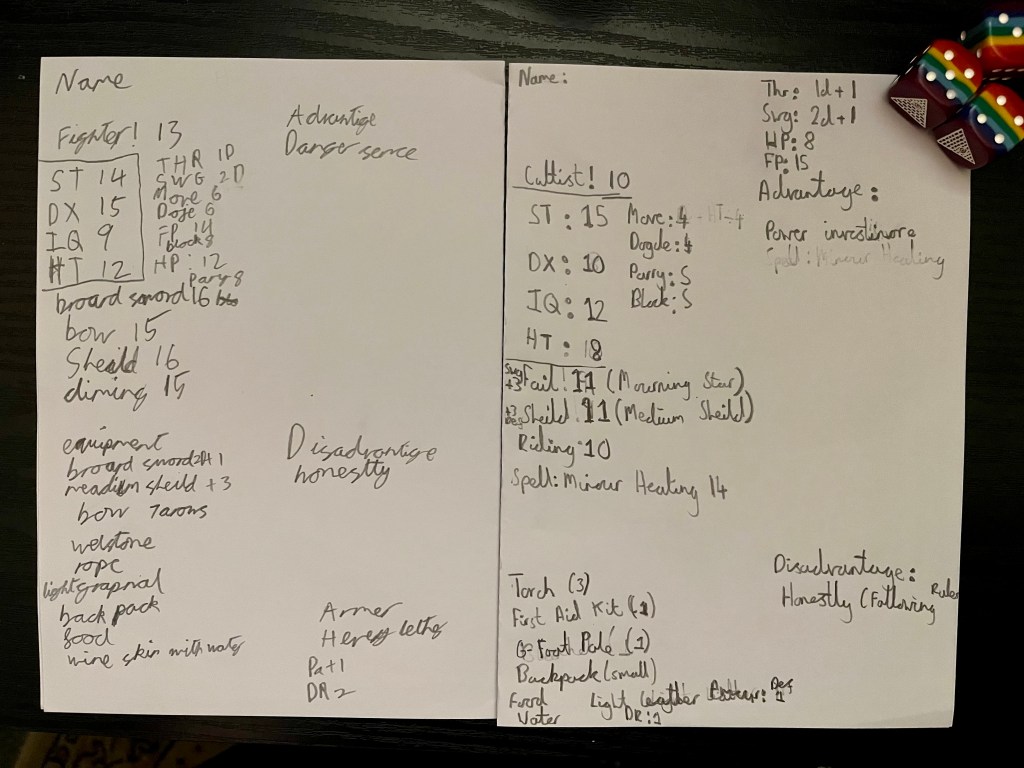 Name
Fighter! 13
ST 14
DX 15
IQ 9
HT 12
THR 1D
SWG 2D
Move 6
Doje 6
FP 14
block 8
HP: 12
Pary 8
broard sword 16
bow 15
Sheild 16
climing 15
equipment
broard sword 2D+1
meadium sheild +3
bow 7 arows
wetstone
rope
light grapnal
back pack
food
wine skin with water
Advantige
Danger sence
Disadvantige
honestty
Armer
Hevey lether
Pa+1
DR2
Name:
Cultist! 10
ST: 15
DX: 10
IQ: 12
HT: 8
Move: 4 - HT-4
Dogde: 4
Parry: 5
Block: 5
Swg +3 Fail! 11 (Mourning Star)
+3 Def Sheild: 11 (Medium Sheild)
Riding: 10
Spell: Minour Healing 14
Torch (3)
First Aid Kit (1)
Foot Pole (1)
Backpack (small)
Food
Water
Light Def 1
DR: 1
Thr: 1d+1
Swg: 2d+1
HP: 8
FP: 15
Advantage:
Power
Spell: Minour Healing
Disadvantage:
Honestly (Following Rules